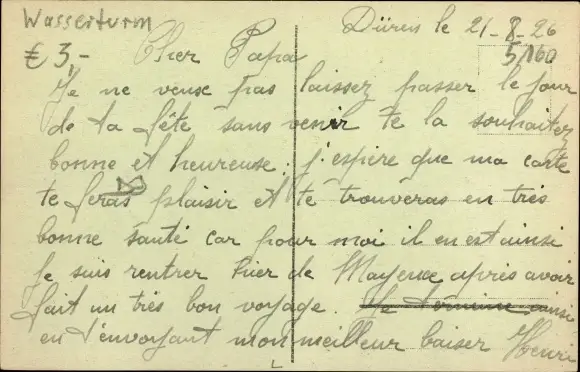 Wasserturm
€ 3,-
Düren le 21-8-26
5/160
Cher Papa
Je ne veux pas laissez passer le jour
de ta fête sans venir te la souhaitez
bonne et heureuse. j'espère que ma carte
te feras plaisir et te trouveras en très
bonne santé car pour moi il en est ainsi
Je suis rentrer hier de Mayence après avoir
fait un très bon voyage. Je termine ainsi
en t'envoyant mon meilleur baiser Henri